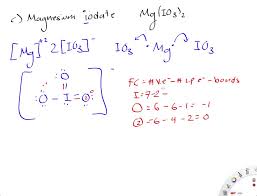 c) Magnesium iodate Mg(IO₃)₂
[Mg]⁺² 2[IO₃]⁻ IO₃ · Mg · IO₃
O
O – I = O
FC = # V.e⁻ - # L.P e⁻ - bonds
I = 7-2-
O = 6-6-1 = -1
O = 6-4-2 = 0